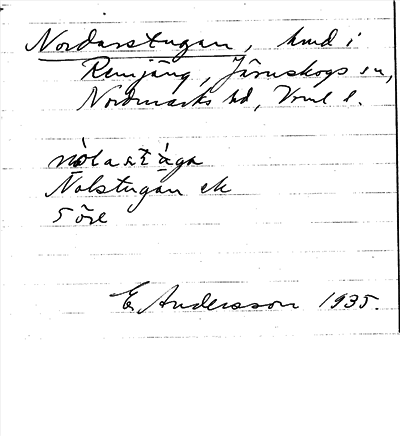 Nordarstugan, hmd i
Remjäng, Järnskogs sn,
Nordmarks hd, Vrml l.
Nolstugan ek
5 öre
E. Andersson 1935.